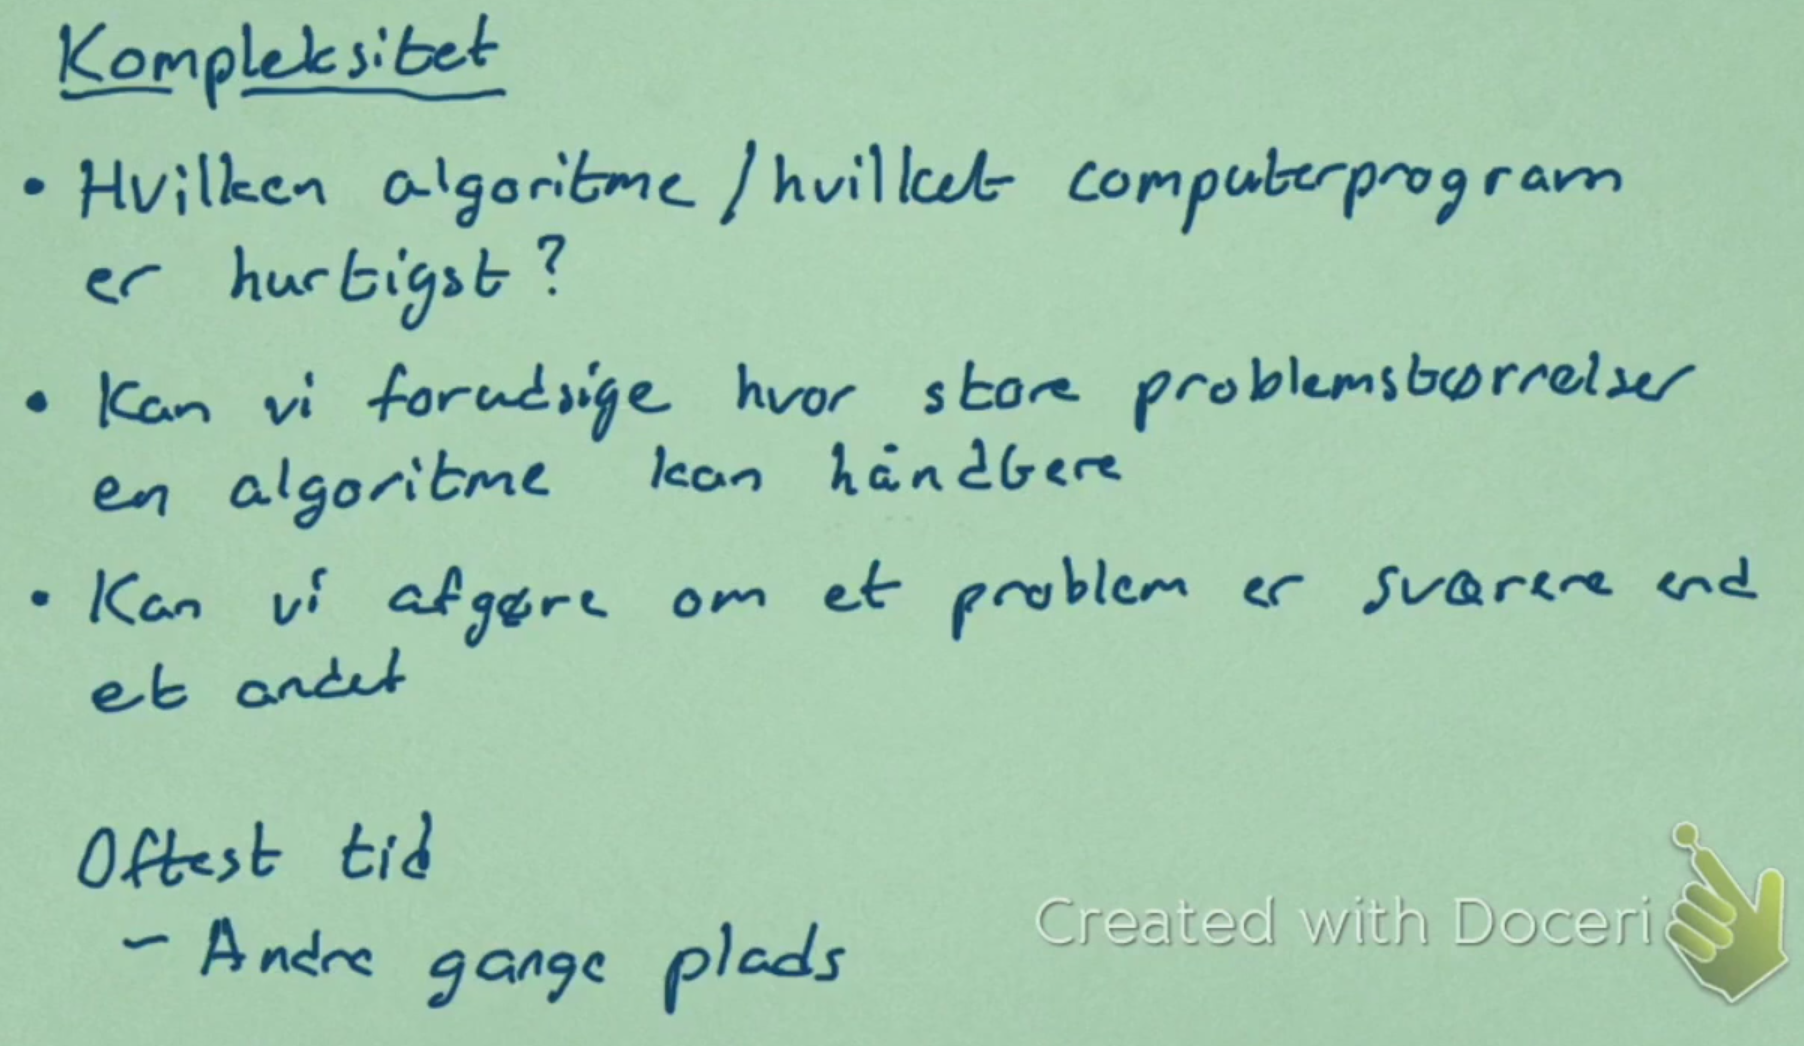 Kompleksitet
• Hvilken algoritme / hvilket computerprogram
er hurtigst?
• Kan vi forudsige hvor store problemstørrelser
en algoritme kan håndtere
• Kan vi afgøre om et problem er sværere end
et andet
Oftest tid
- Andre gange plads
Created with Doceri